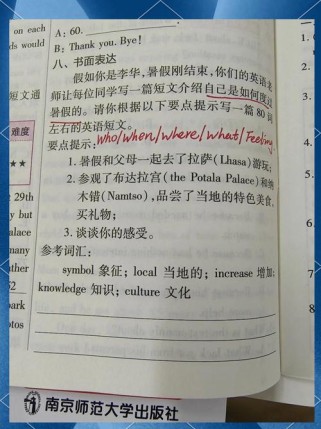 on each
ds would
短文通
难度
★★
29th
y but
alace
many
other
52
park
otos
A: 60.
B: Thank you. Bye!
八、书面表达
假如你是李华,暑假刚结束,你们的英语老
师让每位同学写一篇短文介绍自己是如何度过
暑假的。请你根据以下要点提示写一篇 80 词
左右的英语短文。
要点提示: who/when/where/what/Feeling
1. 暑假和父母一起去了拉萨(Lhasa)游玩;
2. 参观了布达拉宫(the Potala Palace)和纳
木错(Namtso),品尝了当地的特色美食,
买礼物;
3. 谈谈你的感受。
参考词汇:
symbol 象征; local 当地的; increase 增加;
knowledge 知识; culture 文化
南京师范大学出版社